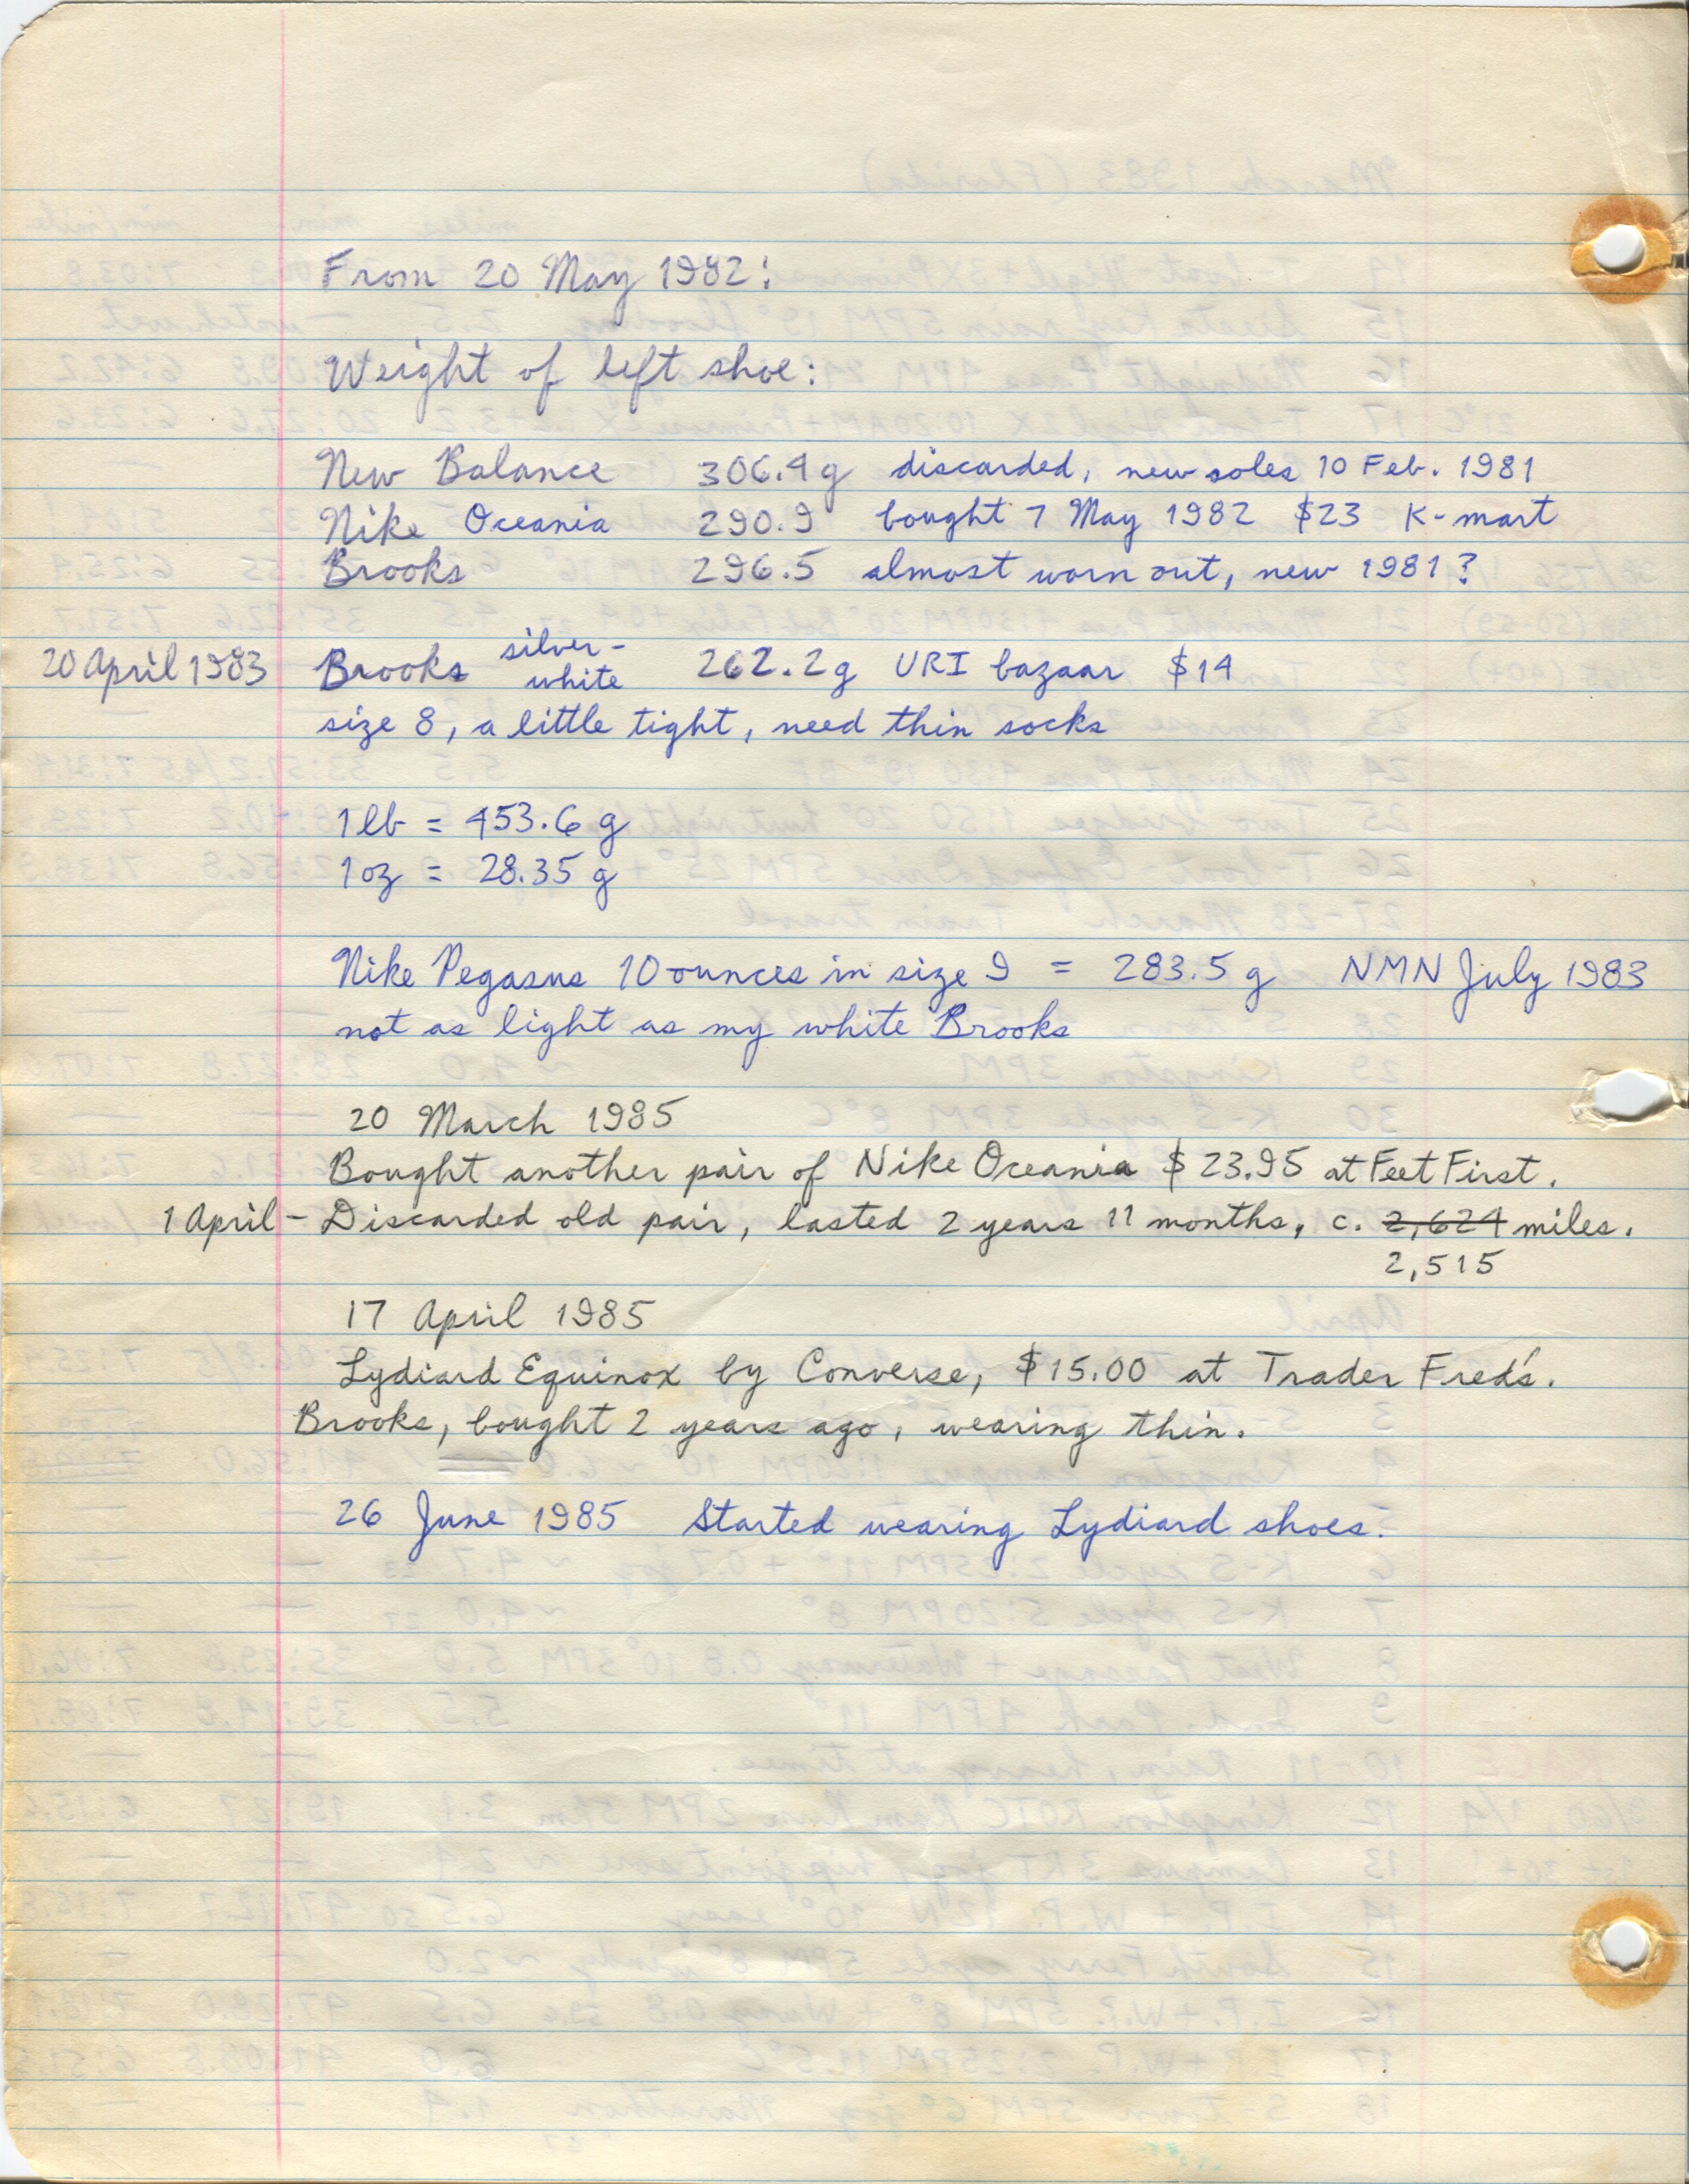 From 20 May 1982:
Weight of left shoe:
New Balance 306.4g discarded, new soles 10 Feb. 1981
Nike Oceania 290.9 bought 7 May 1982 $23 K-mart
Brooks 296.5 almost worn out, new 1981?
20 April 1983 Brooks silver-white 262.2g URI bazaar $14
size 8, a little tight, need thin socks
1 lb = 453.6 g
1 oz = 28.35 g
Nike Pegasus 10 ounces in size 9 = 283.5 g NMN July 1983
not as light as my white Brooks
20 March 1985
Bought another pair of Nike Oceania $23.95 at Feet First.
1 April - Discarded old pair, lasted 2 years 11 months, c. 2,624 miles.
2,515
17 April 1985
Lydiard Equinox by Converse, $15.00 at Trader Fred's.
Brooks, bought 2 years ago, wearing thin.
26 June 1985 Started wearing Lydiard shoes.